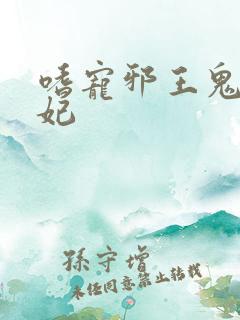 嗜寵邪王鬼
妃
孫守增
未經同意禁止轉載